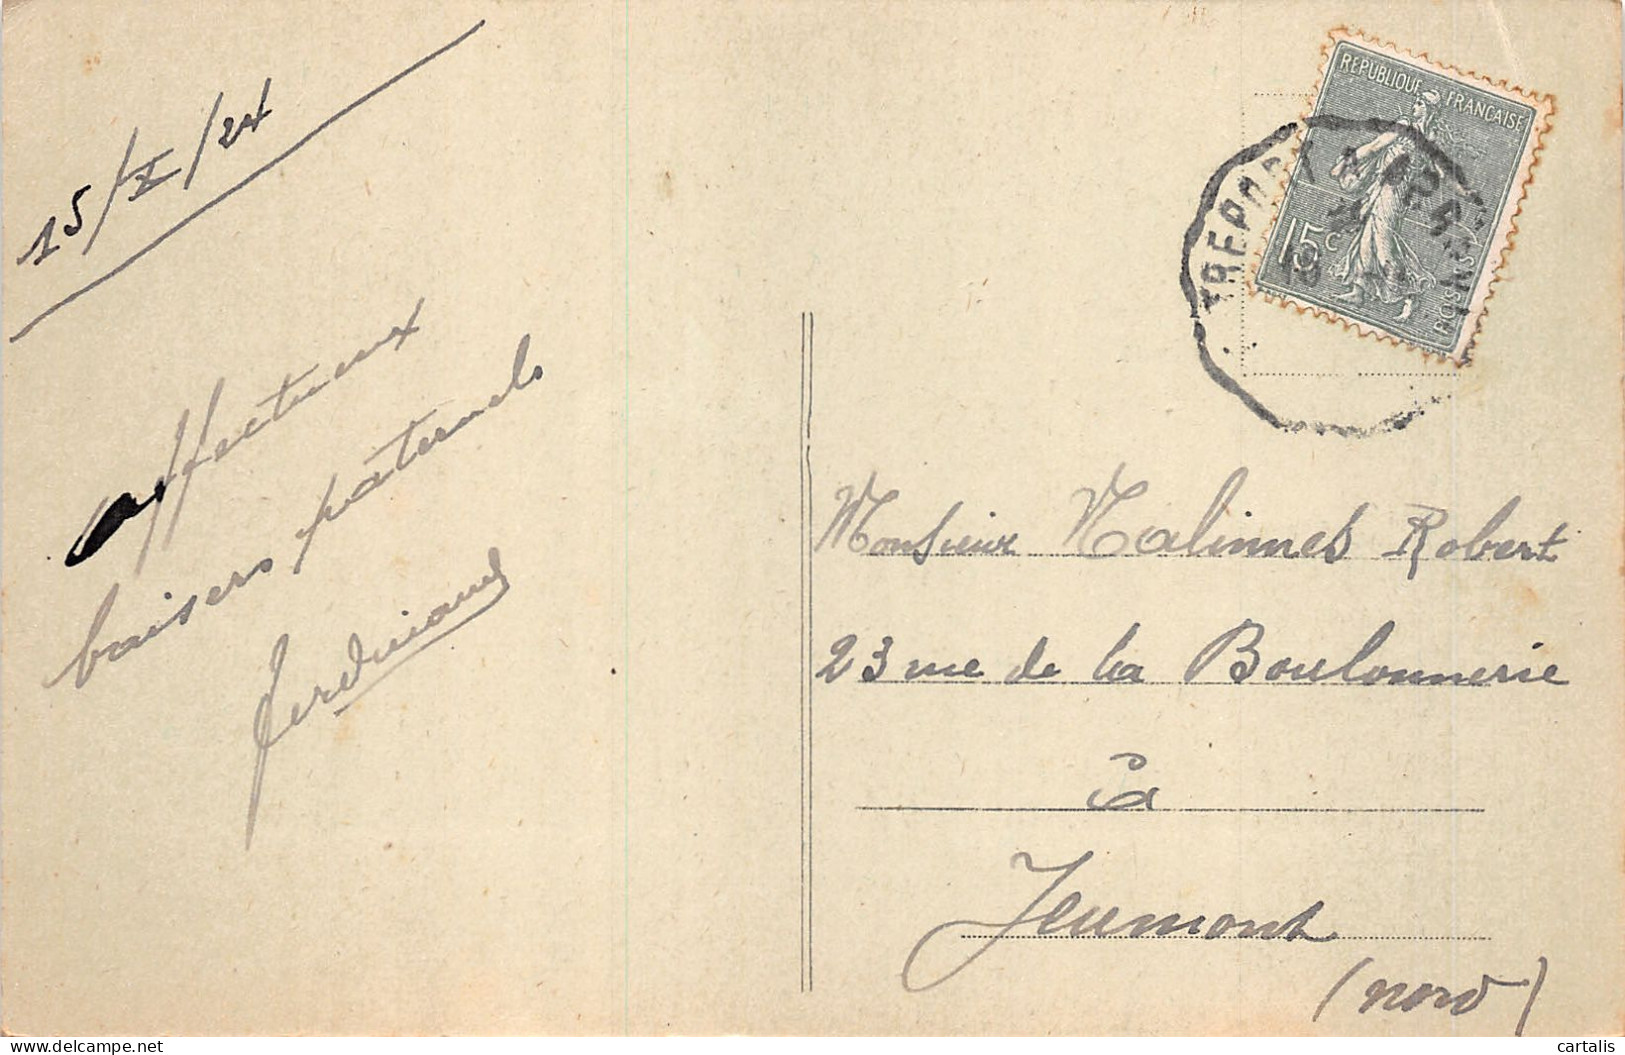 15/X/24
affectueux
baisers paternels
Ferdinand
REPUBLIQUE FRANÇAISE
15c
POSTES
TREPORT A
Monsieur Malinnes Robert
23 rue de la Boulonnerie
à
Jeumont
(Nord)
delcampe.net
cartalis